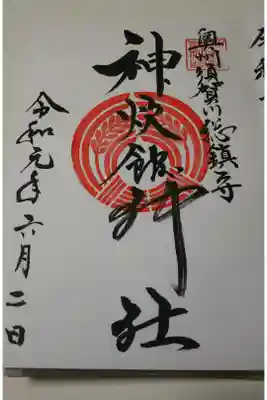 奥州須賀川総鎮守
神炊館神社
令和元年六月二日